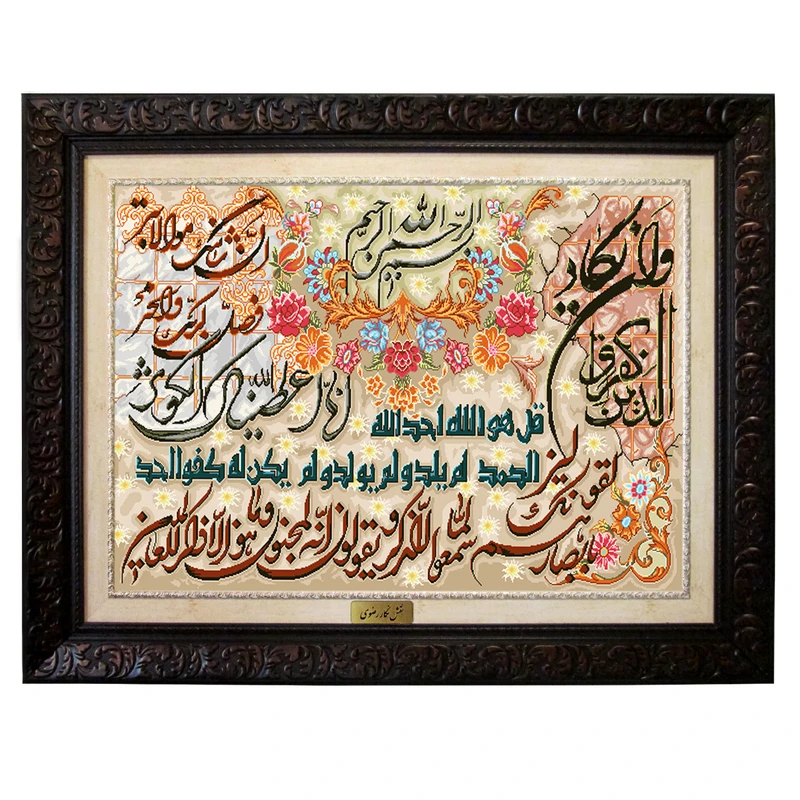 بسم الله الرحمن الرحیم
وان یکاد
الذین کفروا
لیزلقونک
بابصارهم لما سمعوا الذکر و یقولون انه لمجنون وما هو الا ذکر للعالمین
انا اعطیناک الکوثر
فصل لربک وانحر
ان شانئک هو الابتر
قل هو الله احد الله
الصمد لم یلد و لم یولد و لم یکن له کفوا احد
نقش نگار رضوی